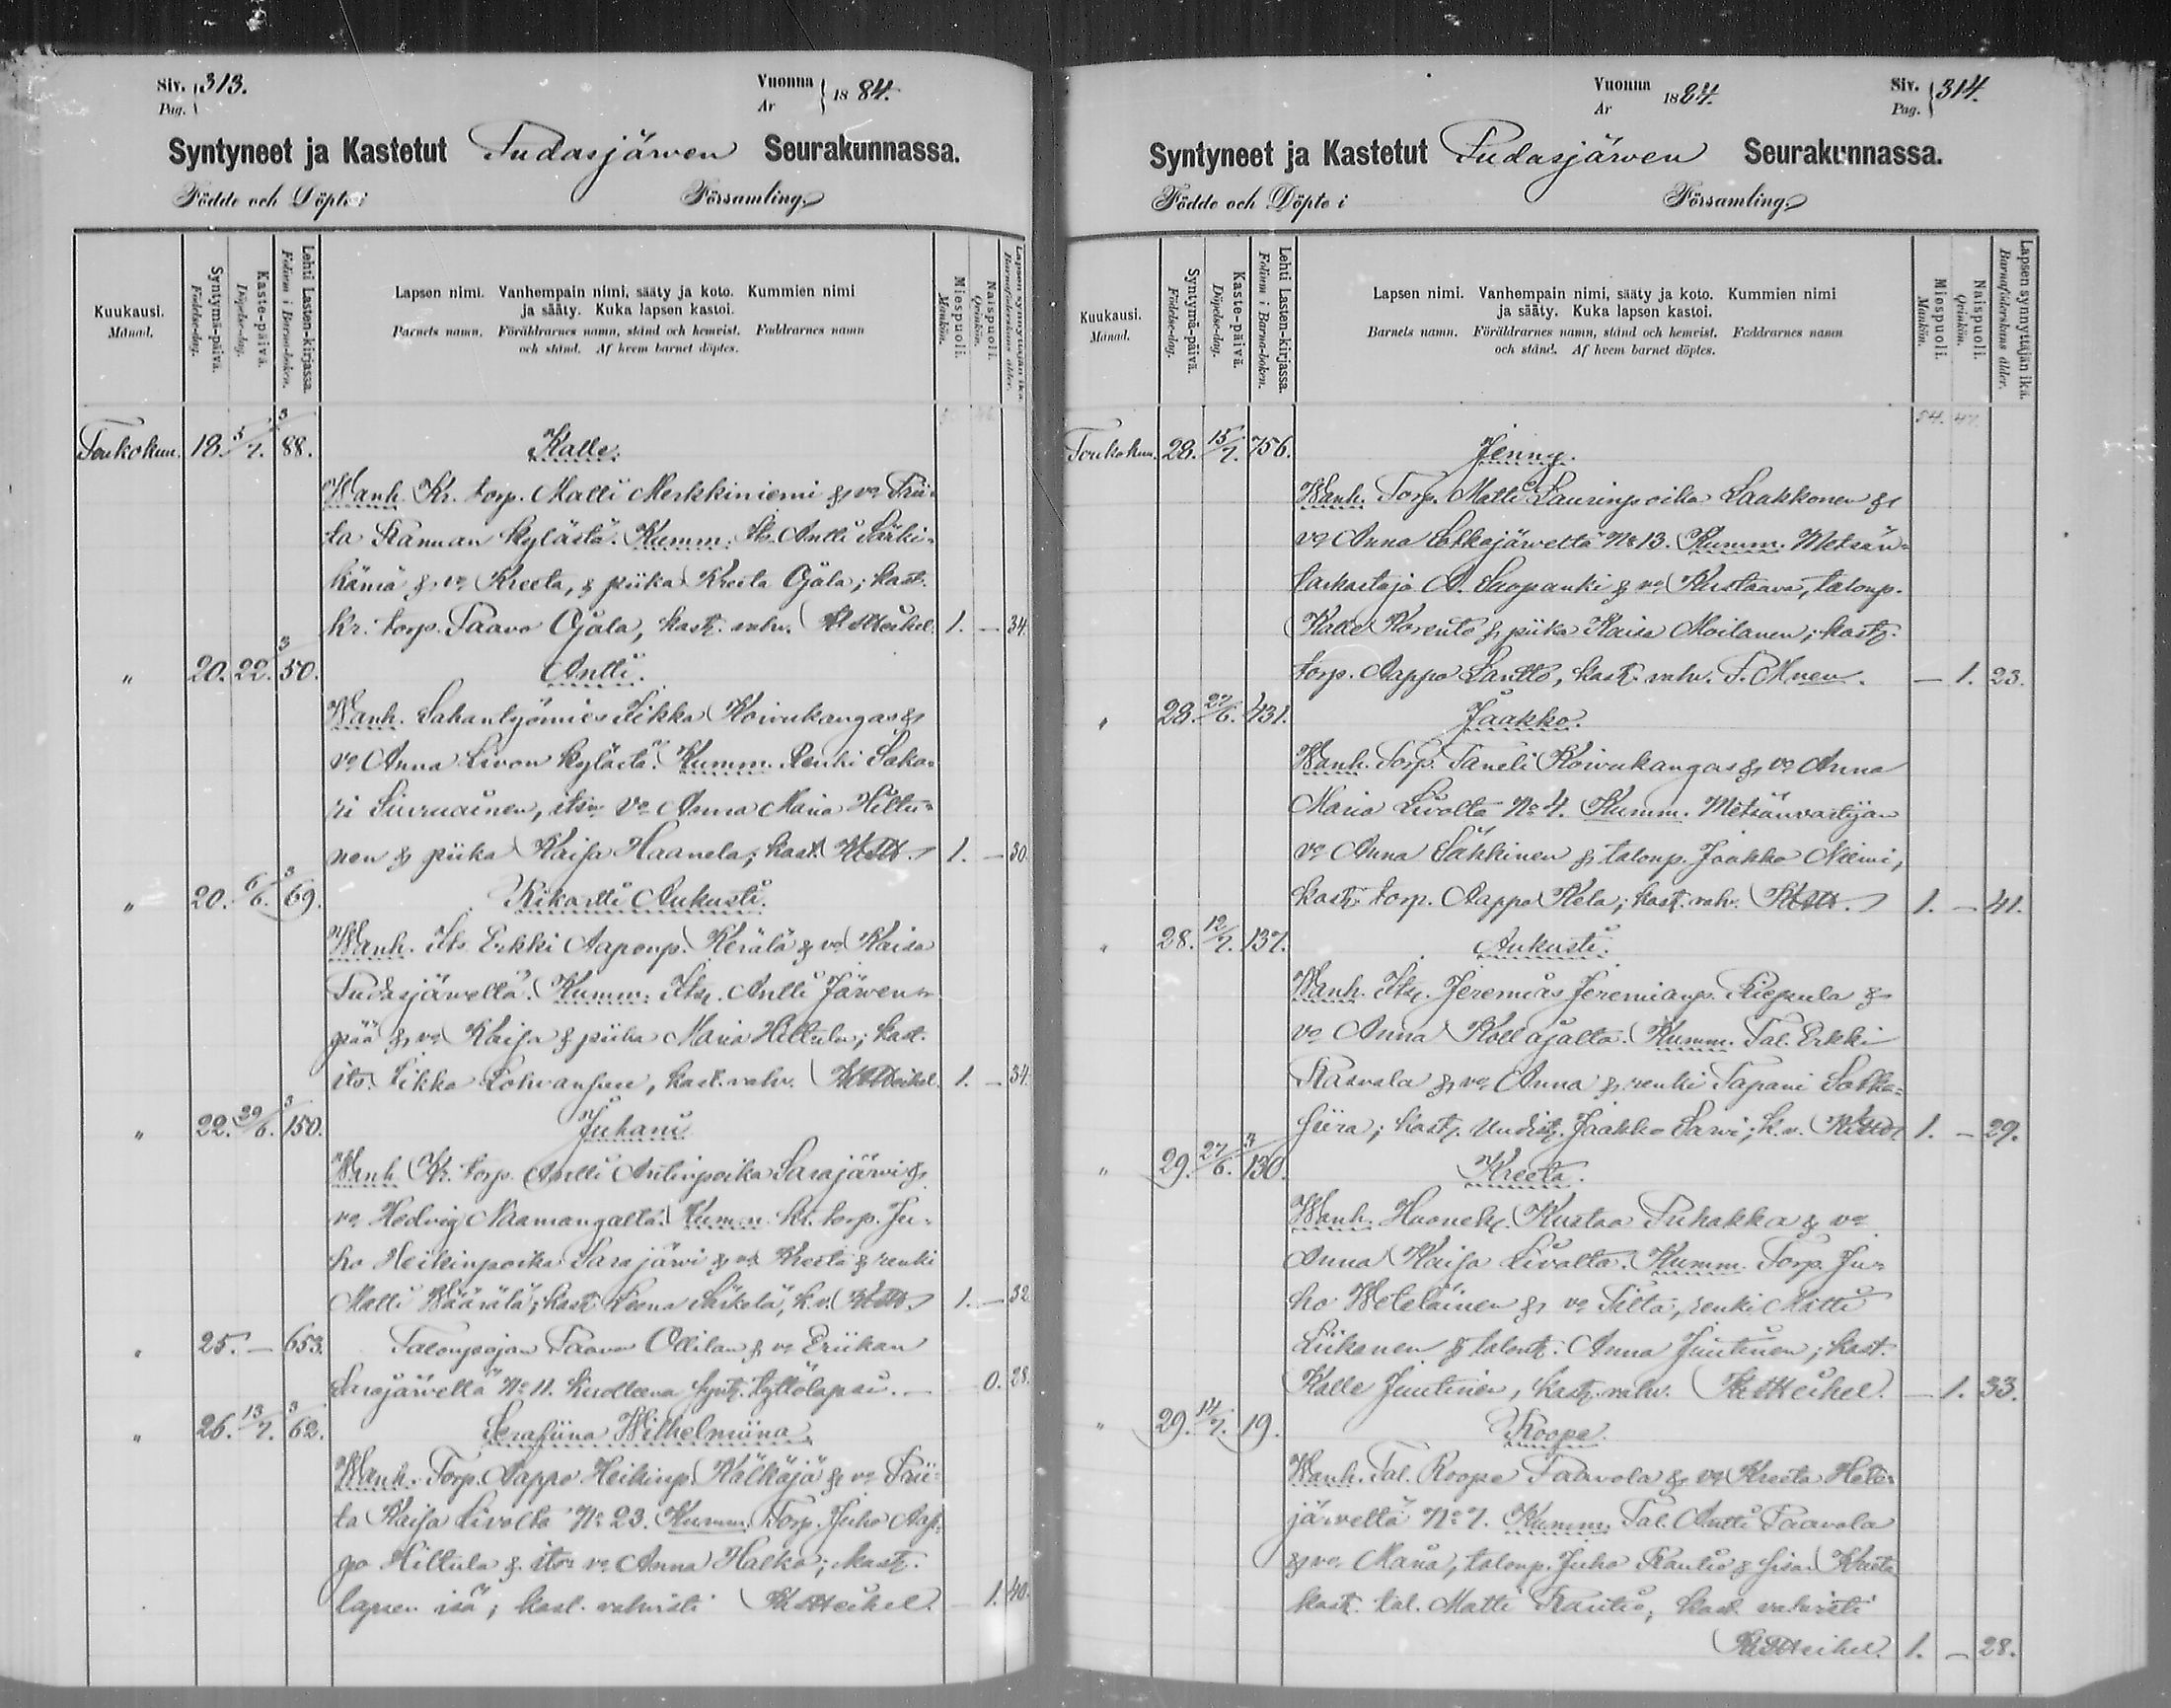 Siv. 313.
Pag.
Vuonna 1884.
År
Syntyneet ja Kastetut Pudasjärwen Seurakunnassa.
Födde och Döpte i Församling
Kuukausi.
Månad.
Syntymä-päivä.
Födelse-dag.
Kaste-päivä.
Döpelse-dag.
Lehti Lasten-kirjassa.
Folium i Barna-boken.
Lapsen nimi. Vanhempain nimi, sääty ja koto. Kummien nimi
ja sääty. Kuka lapsen kastoi.
Barnets namn. Föräldrarnes namn, stånd och hemvist. Faddrarnes namn
och stånd. Af hvem barnet döptes.
Miespuoli.
Mankön.
Naispuoli.
Qvinkön.
Lapsen synnyttäjän ikä.
Barnaföderskans ålder.
Toukokuu. 18. 5/7. 3/88. Kalle.
Wanh. Kr. torp. Matti Merkkiniemi & vo Prii-
ta Rannan kylästä. Kumm. Its. Antti Särki-
kämä & vo Kreeta, & piika Kreeta Ojala; kast.
kr. torp. Paavo Ojala, kast. vahv. 1. — 34.
" 20. 22. 3/50. Antti.
Wanh. Sahantyömies Pekka Koivukangas &
vo Anna Livon kylästä. Kumm. Renki Saka-
ri Siuruainen, itsn vo Anna Maria Hiltu-
nen & piika Kaisa Haanela; kast. 1. — 30.
" 20. 6/6. 3/69. Rikartti Aukusti.
Wanh. Its Erkki Aaponp. Kerälä & vo Kaisa
Pudasjärveltä. Kumm. Its. Antti Järven-
pää & vo Kaisa & piika Maria Hiltula; kast.
its. Pekka Lohvansuu, kast. vahv. 1. — 34.
" 22. 29/6. 3/150. Juhani
Wanh. Kr. torp. Antti Antinpoika Sarajärvi &
vo Hedvig Naamangalta. Kumm. kr. torp. Ju-
ho Heikinpoika Sarajärvi & vo Kreeta & renki
Matti Määrälä; kast. Leena Särkelä, k.v. 1. — 32
" 25. — 653. Talonpojan Paavo Ollilan & vo Eriikan
Sarajärveltä No 11. kuolleena synt. tyttölapsi. — 0. 28.
" 26. 13/7. 3/62. Serafiina Wilhelmiina
Wanh. Torp. Aappo Heikinp. Kälkäjä & vo Prii-
ta Kaisa Livolta No 23. Kumm. Torp. Juho Aap-
po Hiltula & itsn vo Anna Halko; kast.
lapsen isä; kast. vahvisti 1. 40.
Vuonna 1884.
År
Siv. 314.
Pag.
Syntyneet ja Kastetut Pudasjärwen Seurakunnassa.
Födde och Döpte i Församling
Kuukausi.
Månad.
Syntymä-päivä.
Födelse-dag.
Kaste-päivä.
Döpelse-dag.
Lehti Lasten-kirjassa.
Folium i Barna-boken.
Lapsen nimi. Vanhempain nimi, sääty ja koto. Kummien nimi
ja sääty. Kuka lapsen kastoi.
Barnets namn. Föräldrarnes namn, stånd och hemvist. Faddrarnes namn
och stånd. Af hvem barnet döptes.
Miespuoli.
Mankön.
Naispuoli.
Qvinkön.
Lapsen synnyttäjän ikä.
Barnaföderskans ålder.
54. 47.
Toukokuu. 28. 15/7. 756. Jenny.
Wanh. Torp. Matti Laurinpoika Laakkonen &
vo Anna Sotkajärveltä No 13. Kumm. Metsän-
tarkastaja A. Saopanki & vo Kustaava, talonp.
Kalle Korento & piika Kaisa Moilanen; kast.
torp. Aappo Lantto, kast. vahv. — 1. 23.
" 28. 27/6. 431. Jaakko.
Wanh. Torp. Taneli Koivukangas & vo Anna
Maria Livolta No 4. Kumm. Metsänvartijan
vo Anna Säkkinen & talonp. Jaakko Niemi,
kast. torp. Aappo Kela; kast. vahv. 1. — 41.
" 28. 12/7. 137. Aukusti.
Wanh. Its. Jeremias Jeremianp. Riepula &
vo Anna Kollajalta. Kumm. Tal. Erkki
Rasvala & vo Anna & renki Tapani Sotka-
siira; kast. Uudist. Jaakko Sarvi; k.v. 1. — 29.
" 29. 27/6. 3/130. Kreeta.
Wanh. Huonem. Kustaa Puhakka & vo
Anna Kaisa Livolta. Kumm. Torp. Ju-
ho Weteläinen & vo Tilta, renki Matti
Liikanen & talont. Anna Juntunen; kast.
Kalle Juntunen, kast. vahv. — 1. 33.
" 29. 14/7. 19. Roope.
Wanh. Tal. Roope Paavola & vo Kreeta Hete-
järveltä No 7. Kumm. Tal. Antti Paavola
& vo Maria, talonp. Juho Rautio & sisar Kreeta
kast. tal. Matti Rautio, kast. vahvisti
1. — 28.